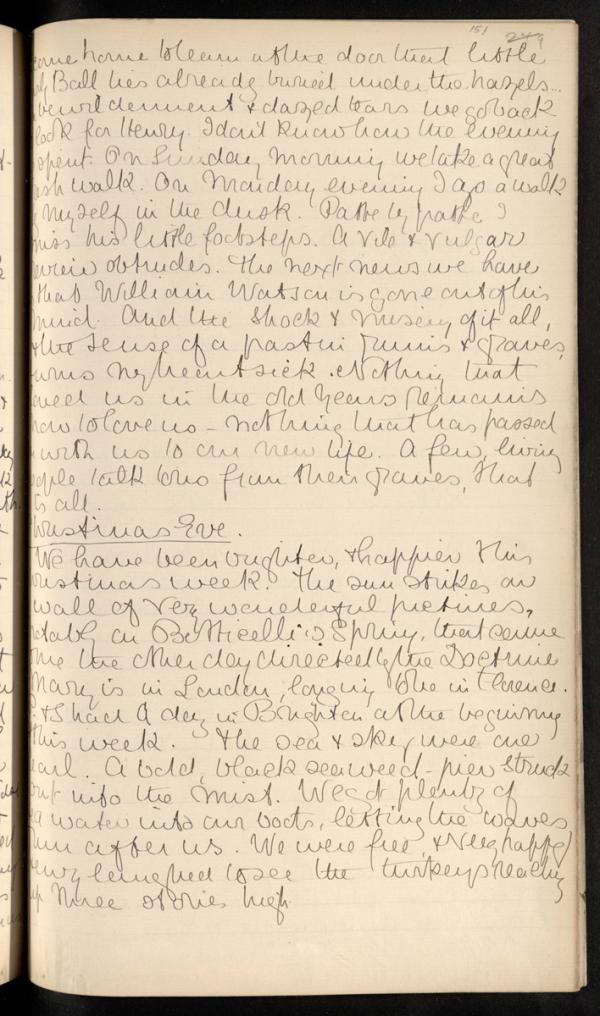 151 249
come home to learn at the door that little
Ball lies already buried under the hazels...
bewilderment & dazed tears we go back
look for Henry. I don't know how the evening
spent. On Sunday morning we take a great
walk. On Monday evening I go a walk
myself in the dusk. Patte by patte I
miss his little footsteps. A vile & vulgar
review obtrudes. The next news we have
that William Watson is gone out of his
mind. And the shock & misery of it all,
& the sense of a past in ruins & graves,
turns my heart sick. Nothing that
loved us in the old years remains
now to love us - nothing that has passed
with us to our new life. A few, living
people talk to us from their graves, that
is all.
Christmas Eve.
We have been brighter, & happier this
Christmas week. The sun strikes on
wall of very wonderful pictures,
notably on Botticelli's Spring, that came
home the other day directed by the Doctrine
Mary is in London, longing to be in Florence.
& I had a day in Brighton at the beginning
this week. The sea & sky were one
pearl. A bold, black seaweed-pier struck
out into the mist. We got plenty of
sea water into our boots, letting the waves
run after us. We were free, & very happy
Henry laughed to see the turkeys reaching
up three stories high